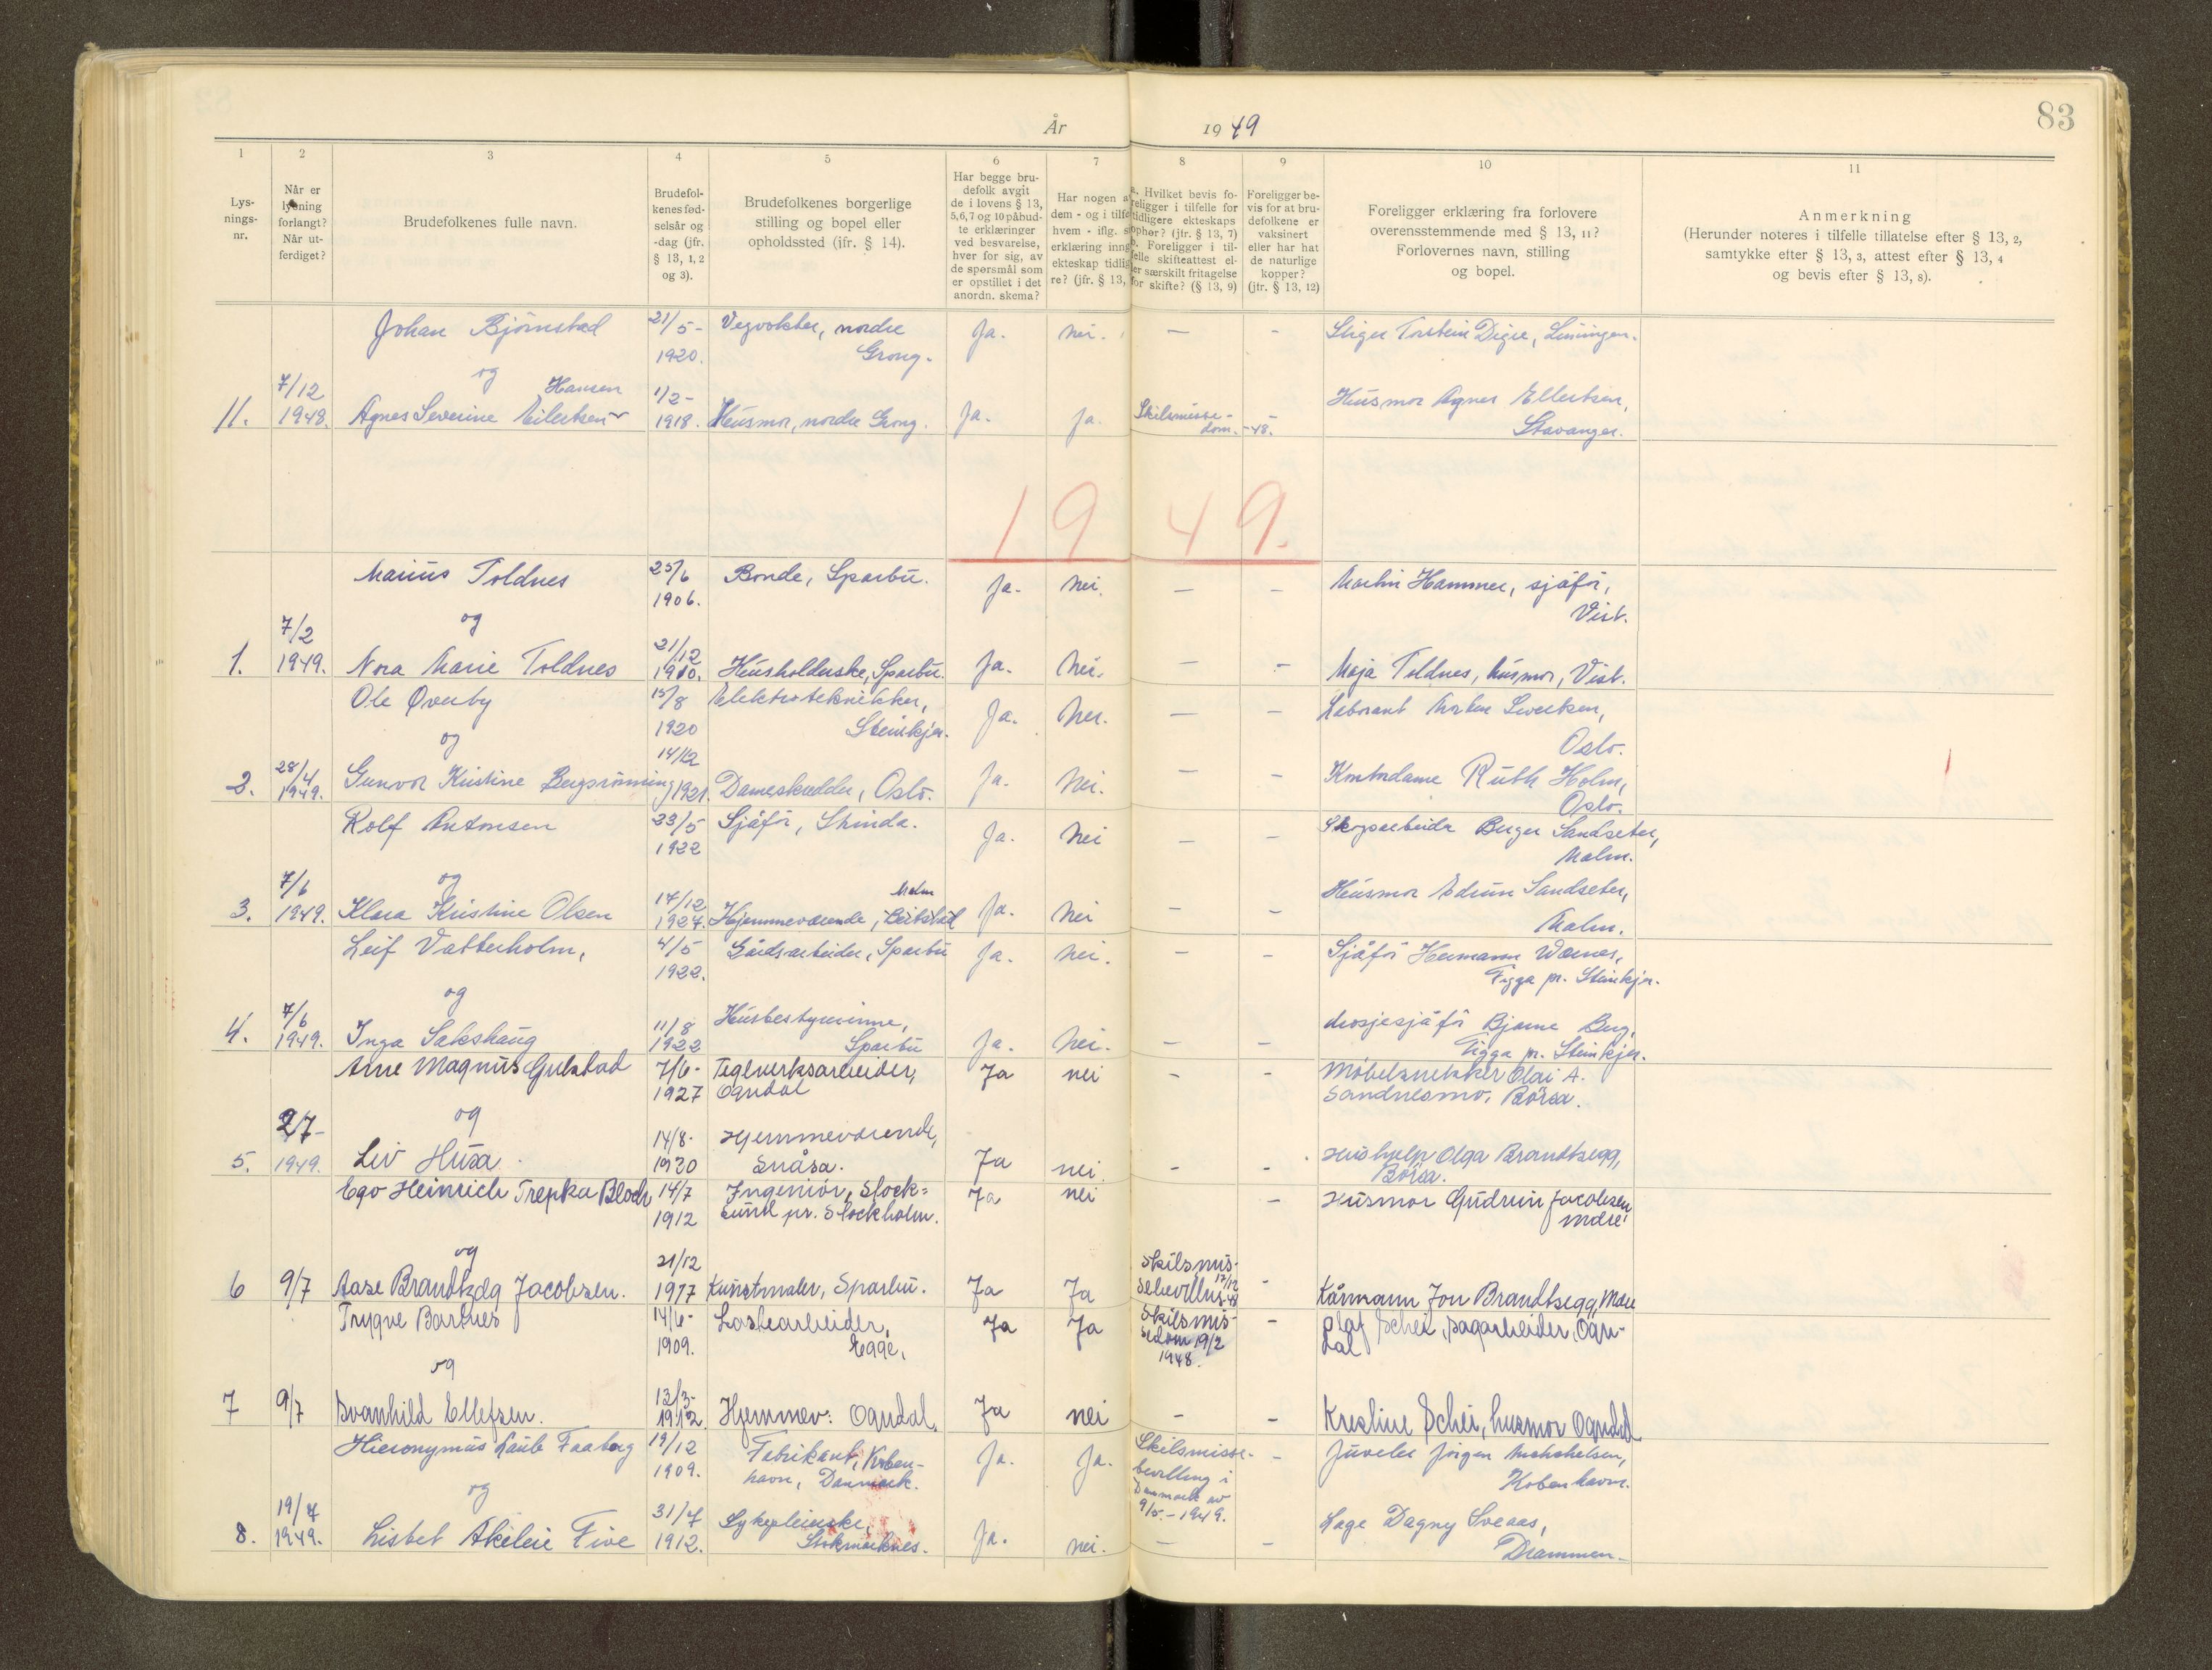 83
År 1949
1
2
3
4
5
6
7
8
9
10
11
Lys-
nings-
nr.
Når er
lysning
forlangt?
Når ut-
ferdiget?
Brudefolkenes fulle navn.
Brudefol-
kenes fød-
selsår og
-dag (jfr.
§ 13, 1, 2
og 3).
Brudefolkenes borgerlige
stilling og bopel eller
opholdssted (jfr. § 14).
Har begge bru-
defolk avgit
de i lovens § 13,
5,6,7 og 10 påbud-
te erklæringer
ved besvarelse,
hver for sig, av
de spørsmål som
er opstillet i det
anordn. skema?
Har nogen a
dem - og i tilfe
hvem - iflg. s
erklæring inng
ekteskap tidlig
re? (jfr. § 13,
a. Hvilket bevis fo-
religger i tilfelle for
tidligere ekteskaps
ophør? (jfr. § 13, 7)
b. Foreligger i til-
felle skifteattest el-
ler særskilt fritagelse
for skifte? (§ 13, 9)
Foreligger be-
vis for at bru-
defolkene er
vaksinert
eller har hat
de naturlige
kopper?
(jfr. § 13, 12)
Foreligger erklæring fra forlovere
overensstemmende med § 13, 11?
Forlovernes navn, stilling
og bopel.
Anmerkning
(Herunder noteres i tilfelle tillatelse efter § 13, 2,
samtykke efter § 13, 3, attest efter § 13, 4
og bevis efter § 13, 8).
Johan Bjørnstad 21/5- Vegvokter, nordre Ja. nei. — -
1920. Grong.
og
7/12 Hansen 1/2-
11. 1948. Agnes Severine Eilertsen 1918. Husmor, nordre Grong. Ja. Ja. Skilsmisse-
dom. -48. -
Torstein Digre,
Husmor Agnes Ellertsen,
Stavanger.
1949.
Marius Toldnes 25/6 Bonde, Sparbu. Ja. Nei. — - Martin Hammer, sjåfør,
1906. Vist.
og
7/2 21/12
1. 1949. Nora Marie Toldnes 1910. Husholderske, Sparbu. Ja. Nei. — - Maja Toldnes, husmor, Vist.
Ole Øverby 15/8 Elektrotekniker, Ja. Nei. — - Laborant Sivertsen,
1920 Steinkjer. Oslo.
og 14/12
28/4
2. 1949. Gunvor Kristine Bergsrønning 1921. Dameskredder, Oslo. Ja. Nei. — - Kontordame Ruth Holm,
Oslo.
Rolf Antonsen 23/5 Sjåfør, Strinda. Ja. Nei — - Skogsarbeider Berger Sandseter,
1922 Malm.
og
7/6 17/12 Malm
3. 1949. Klara Kristine Olsen 1924. Hjemmeværende, Beitstad Ja. Nei — - Husmor Edrun Sandseter,
Malm.
Leif Vatterholm, 4/5 Gårdsarbeider, Sparbu Ja. Nei. — - Sjåfør Hermann Wæenes,
1922. Figga pr. Steinkjer.
og
7/6 11/8 Husbestyrerinne,
4. 1949. Inga Sakshaug 1922 Sparbu Ja. Nei. — - drosjesjåfør Bjarne Berg,
Figga pr. Steinkjer.
Arne Magnus Gulstad 7/6- Teglverksarbeider, Ja nei - - Møbelsnekker Olai A.
1927 Ogndal Sandnesmo, Børsa.
og
27- 14/8- Hjemmeværende,
5. 1949. Liv Husa. 1920 Snåsa. Ja nei. - - Hushjelp Olga Brandtsegg,
Børsa.
Ego Heinrich Trepka Bloch 14/7 Ingeniør, Stock= Ja nei - Husmor Gudrun Jacobsen
1912 sund pr. Stockholm. Mære
og 21/12 Skilsmis-
6 9/7 Aase Brandtzdg Jacobsen. 1917 Kunstmaler, Sparbu. Ja Ja sebevilling 17/12 48 - Kårmann Jon Brandtsegg, Mære
Trygve Bartnes 14/6- Lastearbeider, Ja Ja Skilsmis- - Olaf Schei, sagarbeider, Ogn-
1909. Egge, sedom 19/2 dal
1948.
og
13/3-
7 9/7 Svanhild Ellefsen. 1912. Hjemmev: Ogndal. Ja nei - - Kristine Schei, husmor Ogndal
Hieronymus Laub Faaborg 19/12 Fabrikant, Køben- Ja. Ja. Skilsmisse- - Juveler Jørgen Michelsen,
1909. havn, Danmark. bevilling i København.
og Danmark av
19/7 31/7 Sykepleierske, 9/5.-1949. Lage Dagny Sveaas,
8. 1949. Lisbet Akeleie Five 1912. Stokmarknes. Ja. nei. — - Drammen.